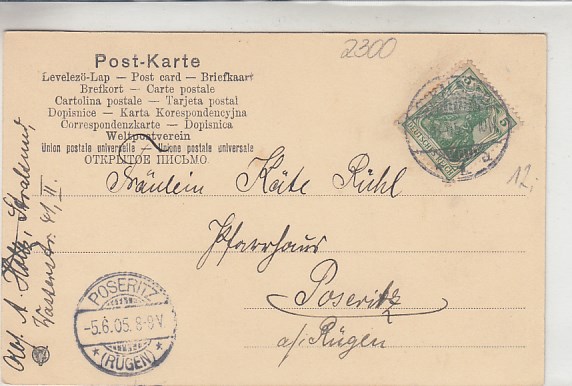 2300
Post-Karte
Levelező-Lap — Post card — Briefkaart
Brefkort — Carte postale
Cartolina postale — Tarjeta postal
Dopisnice — Karta Korespondencyjna
Correspondenzkarte — Dopisnica
Weltpostverein
Union postale universelle — Unione postale universale
ОТКРЫТОЕ ПИСЬМО
5
12,-
Fräulein Käte Rühl
Pfarrhaus
Poseritz
a/ Rügen
POSERITZ
-5.6.05. 8-9V.
* (RÜGEN) *
Abs. A. Stralsund,
Wasserstr. 41, II.